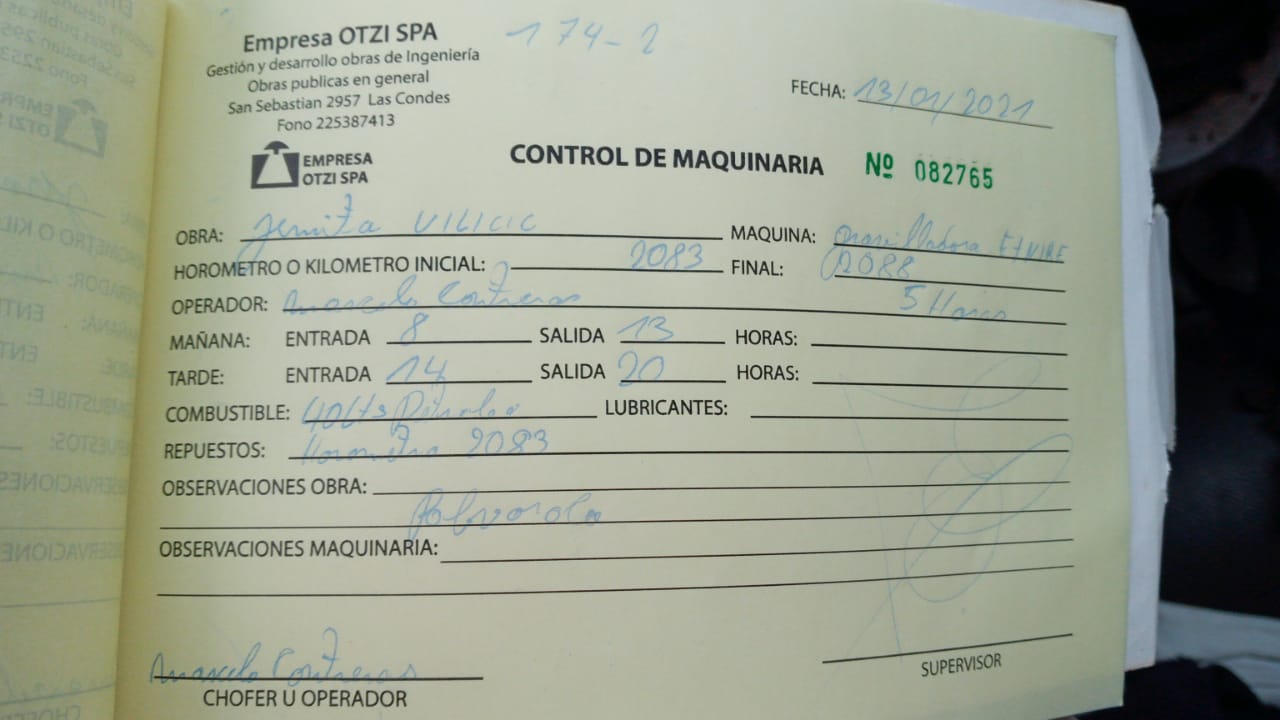 Empresa OTZI SPA
174-2
Gestión y desarrollo obras de Ingeniería
Obras publicas en general
San Sebastian 2957 Las Condes
Fono 225387413
FECHA: 13/01/2021
EMPRESA
OTZI SPA
CONTROL DE MAQUINARIA Nº 082765
OBRA: VILICIC MAQUINA:
HOROMETRO O KILOMETRO INICIAL: 2083 FINAL: 2088
OPERADOR: Marcelo Contreras 5 Horas
MAÑANA: ENTRADA 8 SALIDA 13 HORAS:
TARDE: ENTRADA 14 SALIDA 20 HORAS:
COMBUSTIBLE: LUBRICANTES:
REPUESTOS: Horometro 2083
OBSERVACIONES OBRA:
OBSERVACIONES MAQUINARIA:
Marcelo Contreras
CHOFER U OPERADOR
SUPERVISOR